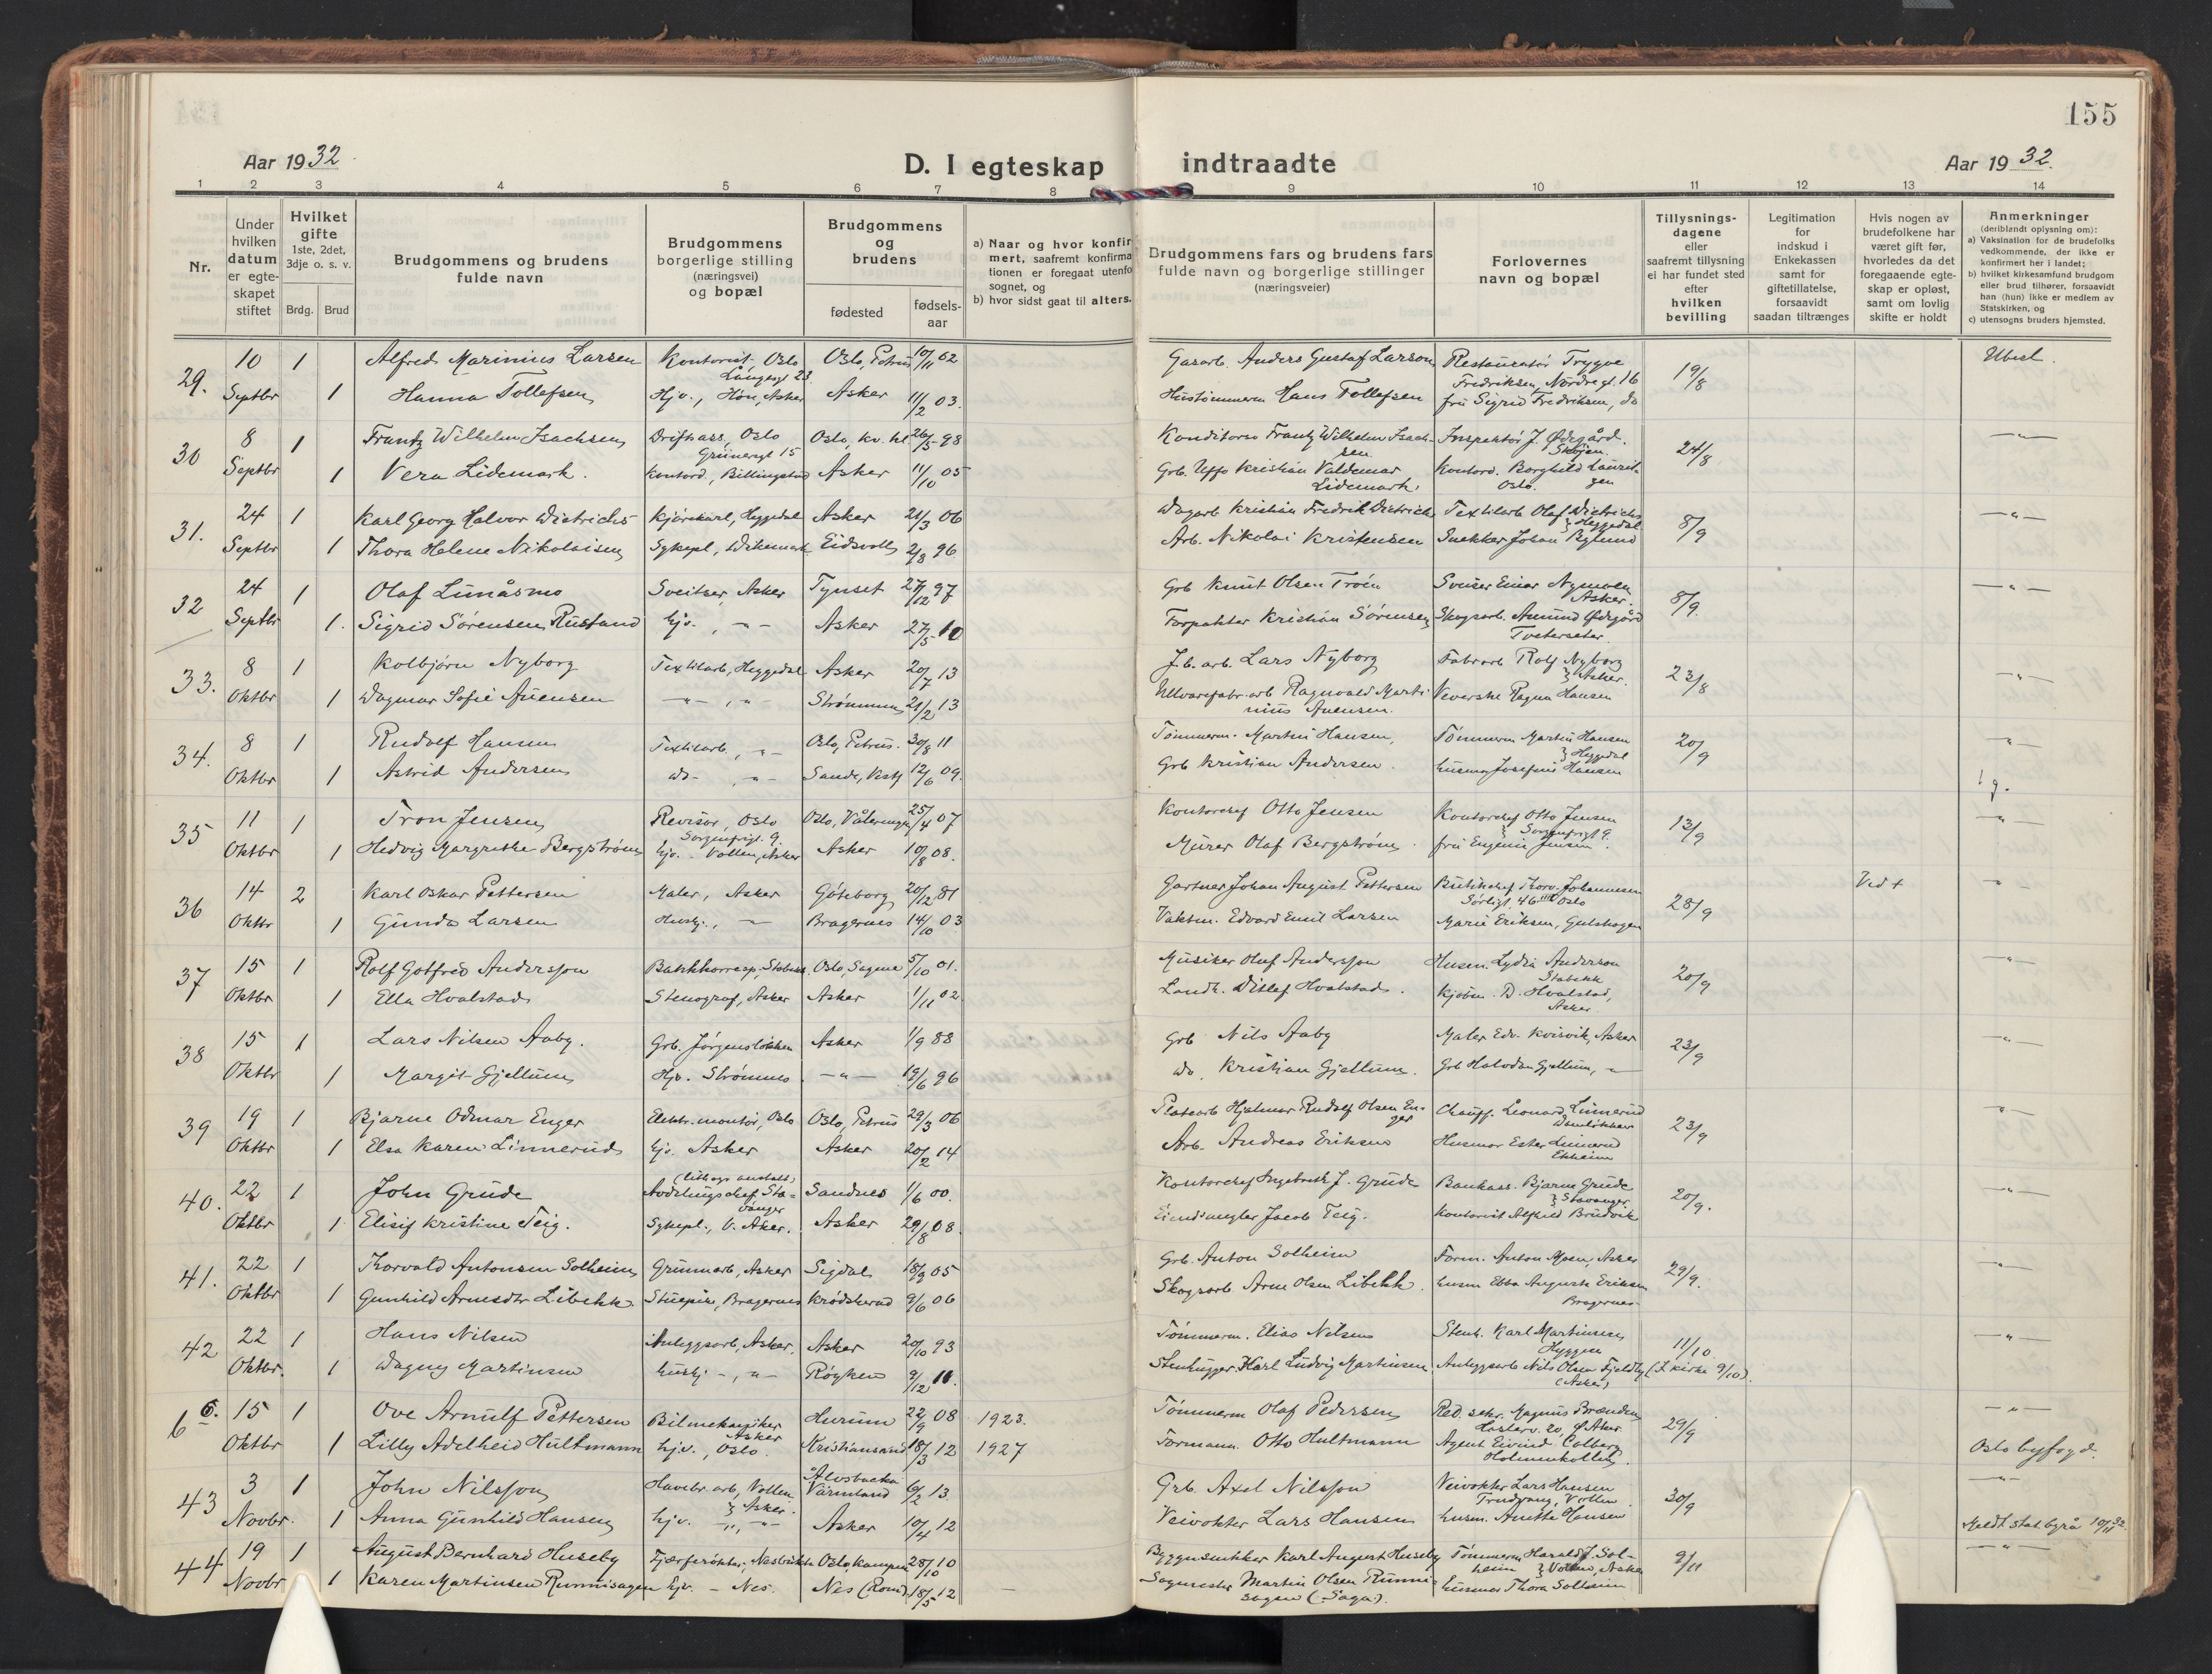 155
Aar 1932.
D. I egteskap indtraadte
Aar 1932.
1 2 3 4 5 6 7 8 9 10 11 12 13 14
Nr.
Under hvilken datum er egte-skapet stiftet
Hvilket gifte 1ste, 2det, 3dje o. s. v.
Brdg. Brud
Brudgommens og brudens fulde navn
Brudgommens borgerlige stilling (næringsvei) og bopæl
Brudgommens og brudens
fødested
fødsels-aar
a) Naar og hvor konfir
mert, saafremt konfirma
tionen er foregaat utenfo
sognet, og
b) hvor sidst gaat til alters.
Brudgommens fars og brudens fars fulde navn og borgerlige stillinger (næringsveier)
Forlovernes navn og bopæl
Tillysnings-dagene eller saafremt tillysning ei har fundet sted efter hvilken bevilling
Legitimation for indskud i Enkekassen samt for giftetillatelse, forsaavidt saadan tiltrænges
Hvis nogen av brudefolkene har været gift før, hvorledes da det foregaaende egte-skap er opløst, samt om lovlig skifte er holdt
Anmerkninger
(deriblandt oplysning om):
a) Vaksination for de brudefolks vedkommende, der ikke er konfirmert her i landet;
b) hvilket kirkesamfund brudgom eller brud tilhører, forsaavidt han (hun) ikke er medlem av Statskirken, og
c) utensogns bruders hjemsted.
29. 10 1 Alfred Marinius Larsen Kontorist, Oslo Langesgt 23. Oslo, Petrus 10/11 02 Gasarb. Anders Gustaf Larson Restauratør Trygve Fredriksen, Nordregt. 16 19/8 Ubesl.
Septbr 1 Hanna Tollefsen Hjv., Høn, Asker Asker 11/2 03. Hustømmerm Hans Tollefsen fru Sigrid Fredriksen, do
30 8 1 Frantz Wilhelm Isachsen Driftsass, Oslo Grünersgt 15 Oslo, kv. kl. 26/5 98 Konditorso Frantz Wilhelm Isachsen Inspektør J. Ødegård. Skøjen. 24/8 -"-
Septbr 1 Vera Lidemark. Kontord., Billingstad Asker 11/10 05 Grb. Uffo Kristian Valdemar Lidemark. Kontord. Borghild Lauritzen Oslo.
31. 24 1 Karl Georg Halvor Dietrichs Kjørekarl, Heggedal Asker 21/3 06 Dagarb Kristian Fredrik Dietrichs Textilarb Olaf Dietrichs } Heggedal 8/9 -"-
Septbr 1 Thora Helene Nikolaisen Sykepl, Dikemark Eidsvoll 2/8 96. Arb. Nikolai Kristensen Snekker Johan Bylund
32 24 1 Olaf Lunåsmo Sveitser, Asker Tynset 27/12 97 Grb Knut Olsen Troen Svenser Einar Nymoen Asker. 8/9. -"-
Septbr 1. Sigrid Sørensen Rustand hjv. -"- Asker 27/5 10 Forpakter Kristian Sørensen Skogsarb. Amund Ødegård Tveterseter.
33. 8 1 Kolbjørn Nyborg Textilarb, Heggedal Asker 20/7 13 J.b. arb. Lars Nyborg Fabrarb Rolf Nyborg } Asker. 23/8 -"-
Oktbr 1 Dagmar Sofie Auensen -"-, -"- Strømmen 21/2 13 Ullvarefabr.arb Ragnvald Martinius Auensen. Veverske Ragna Hansen
34. 8 1 Rudolf Hansen Textilarb, -"- Oslo, Petrus. 30/8 11 Tømmerm. Martin Hansen, Tømmerm Martin Hansen } Heggedal 20/9 -"-
Oktbr 1 Astrid Andersen do- , -"- Sande, Vestf 12/6 09. Grb Kristian Andersen. husmor Josefine Hansen 1 g.
35 11 1 Tron Jensen Revisor, Oslo Sorgenfrigt. 9. Oslo, Våleringen 25/4 07 Kontorchef Otto Jensen Kontorchef Otto Jensen } Sorgenfrigt 9. 13/9 -"-
Oktbr 1 Hedvig Margrethe Bergstrøm hjv. - Vollen, Asker Asker 10/8 08. Murer Olaf Bergstrøm. fru Eugenie Jensen.
36 14 2 Karl Oskar Pettersen Maler, Asker Göteborg 20/12 81 Gartner Johan August Pettersen Butikchef Thorv. Johannesen Sørligt. 46 III Oslo 28/9 Ved + -"-
Oktbr 1 Gunda Larsen Hushj., -"- Bragernes 14/10 03 Vaktm. Edvard Emil Larsen Marie Eriksen, Gulskogen
37 15 1 Rolf Gotfred Andersson Bankkorresp. Stabekk. Oslo, Sagene 5/10 01. Musiker Oluf Andersson Husm. Lydia Anderson Stabekk 20/9 -"-
Oktbr 1 Ella Hvalstad Stenograf, Asker Asker 1/11 02. Landh. Ditlef Hvalstad. Kjøbm. D. Hvalstad, Asker.
38 15 1 Lars Nilsen Aaby. Grb. Jørgensløkken Asker 1/9 88 Grb Nils Aaby Maler Edv. Kvisvik, Asker 23/9 -"-
Oktbr 1 Margit Gjellum Hjv. Strømmen -"- 19/6 96 do. Kristian Gjellum. Grb Halvdan Gjellum, -"-
39 19 1 Bjarne Odmar Enger Elektr.montør, Oslo Oslo, Petrus 29/3 06 Platearb Hjalmar Rudolf Olsen Enger Chauff. Leonard Linnerud 23/9 -"-
Oktbr 1 Elsa Karen Linnerud hjv. Asker Asker 20/2 14 Arb. Andreas Eriksen Husmor Ester Linnerud Ekheim
40. 22 1 John Grude (lithogr. anstalt) Avdelingschef Stavanger Sandnes 1/6 00. Kontorchef Ingebreth J. Grude Bankass. Bjarne Grude } Stavanger 20/9. -"-
Oktbr 1 Elisif Kristine Teig. Sykepl., V. Aker. Asker 29/8 08. Eiendsmegler Jacob Teig. Kontorist Alfhild Brudvik
41. 22 1 Thorvald Antonsen Solheim Grunnarb, Asker Sigdal 18/9 05 Grb. Anton Solheim Form. Anton Moen, Asker 29/9. -"-
Oktbr 1 Gunhild Arnesdtr Libekk. Stuepike, Bragernes Krødsherad 9/6 06 Skogsarb Arne Olsen Libekk. husm Ebba Augusta Eriksen Bragernes
42 22 1 Hans Nilsen Anleggsarb, Asker. Asker 20/10 93 Tømmerm. Elias Nilsen Stenh. Karl Martinsen Hyggen 11/10. -"-
Oktbr. 1 Dagny Martinsen hushj -, "- Røyken 9/12 10. Stenhugger Karl Ludvig Martinsen Anleggsarb Nils Olsen Fjeldby (Asker) (I kirke 9/10).
6 6. 15 1 Ove Arnulf Pettersen Bilmekaniker Asker Hurum 22/9 08 1923. Tømmerm Olaf Pedersen Red. sekr. Magnus Brænden Haslev. 20, Ø Aker 29/9 -"-
Oktbr 1 Lilly Adelheid Hultmann hjv., Oslo. Kristiansand 18/3 12 1927 Formann. Otto Hultmann Agent Eivind Colberg Holmenkollen. Oslo byfogd.
43 3 1 John Nilsson Havebr.arb, Vollen } Asker. Älvsbacka Värmland 6/2 13. Grb. Axel Nilsson Veivokter Lars Hansen Trudvang, Vollen. 30/9 -"-
Novbr. 1 Anna Gunhild Hansen hjv. -"- -"- Asker 10/4 12 Veivokter Lars Hansen husm. Anette Hansen Meldt stat.byrå 10/11 32.
44 19 1 August Bernhard Huseby Fjærferøkter, Nesbukta Oslo, Kampen 28/10 10 Byggnsnekker Karl August Huseby Tømmerm Harald J. Solheim } Vollen, Asker 9/11 -"-
Novbr 1 Karen Martinsen Runnisagen hjv. - Nes. Nes (Rom.) 18/5 12 - Sagmester Martin Olsen Runnisagen (Saga). husmor Thora Solheim